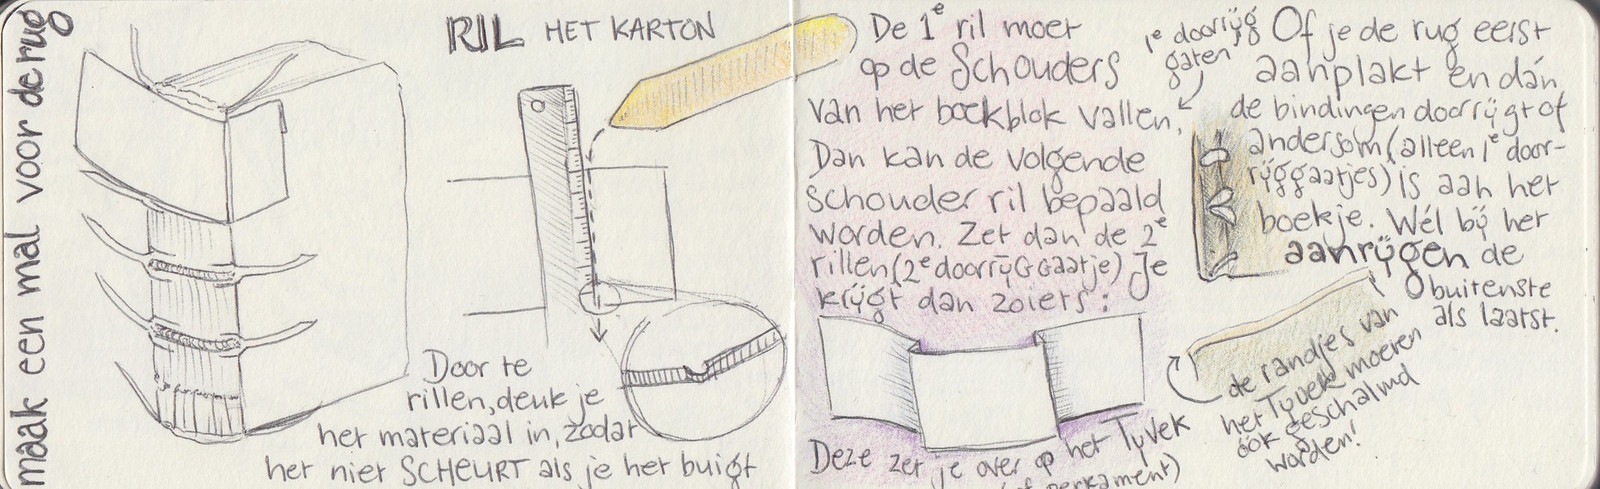 maak een mal voor de rug
RIL HET KARTON
Door te
rillen, deuk je
het materiaal in, zodat
het niet SCHEURT als je het buigt
De 1e ril moet
op de Schouders
van het boekblok vallen.
Dan kan de volgende
schouder ril bepaald
worden. Zet dan de 2e
rillen (2e doorrijggaatje) Je
krijgt dan zoiets:
Deze zet je over op het Tyvek
(of perkament)
1e doorrijg
gaten
Of je de rug eerst
aanplakt en dan
de bindingen doorrijgt of
andersom (alleen 1e door-
rijggaatjes) is aan het
boekje. Wél bij het
aanrijgen de
buitenste
als laatst.
de randjes van
het Tyvek moeten
óók geschalmd
worden!